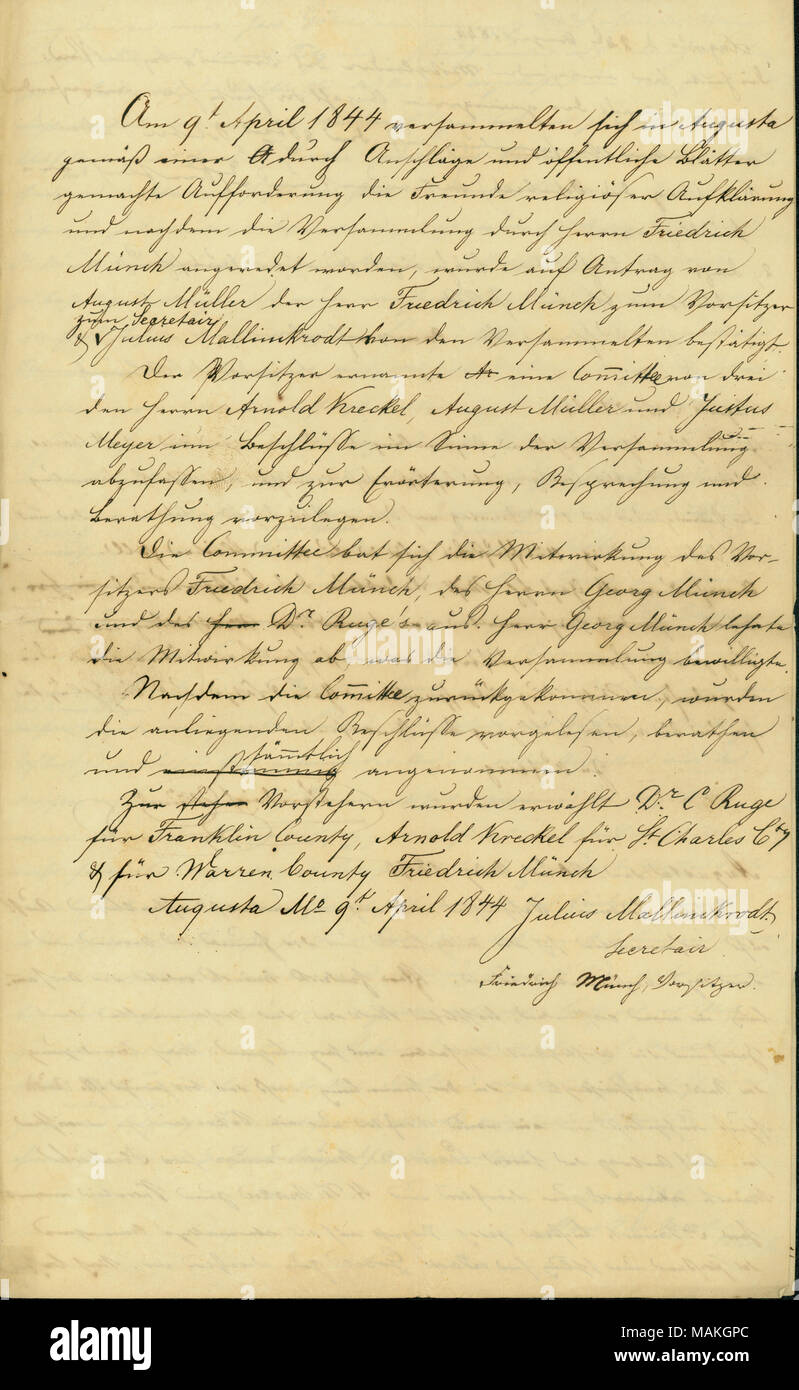 Am 9t April 1844 versammelten sich in Augusta
gemäß einer durch Anschläge und öffentliche Blätter
gemachte Aufforderung die Freunde religiöser Aufklärung
und nachdem die Versammlung durch Herrn Friedrich
Münch angeredet worden, wurde auf Antrag von
August Müller der Herr Friedrich Münch zum Vorsitzer
zum Secretair
& Julius Mallinckrodt von den Versammelten bestätigt.
Der Vorsitzer ernannte eine Committee von drei
den Herrn Arnold Kreckel, August Müller und Justus
Meyer um Beschlüsse im Sinne der Versammlung
abzufassen, und zur Erörterung, Besprechung und
Berathung vorzulegen.
Die Committee bat sich die Mitwirkung des Vor-
sitzers Friedrich Münch, des Herrn Georg Münch
und des Herr Dr Ruge's aus. Herr Georg Münch lehnte
die Mitwirkung ab, was die Versammlung bewilligte.
Nachdem die Committee zurückgekommen, wurden
die anliegenden Beschlüsse vorgelesen, berathen
sämmtlich
und einstimmig angenommen.
Zur Vorstehern wurden erwählt Dr C Ruge
für Franklin County, Arnold Kreckel für St Charles Cty
& für Warren County Friedrich Münch
Augusta Mo 9t April 1844 Julius Mallinckrodt
Secretair
Friedrich Münch, Vorsitzer.
alamy
alamy
Image ID: MAKGPC
www.alamy.com